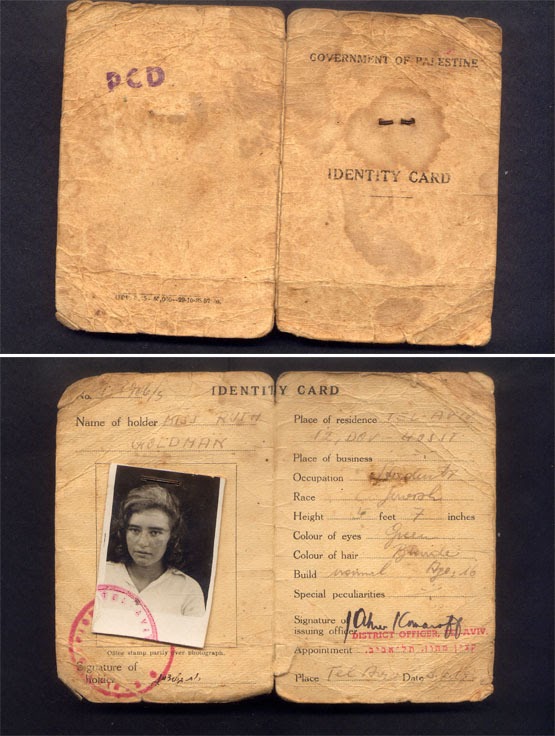 PCD
GOVERNMENT OF PALESTINE
IDENTITY CARD
IDENTITY CARD
No.
Name of holder MISS RUTH
GOLDMAN
Place of residence TEL-AVIV
12, DOV-HOSS ST
Place of business
Occupation Student
Race Jewish
Height 5 feet 7 inches
Colour of eyes Green
Colour of hair Blonde
Build normal Age, 16
Special peculiarities
Office stamp partly over photograph.
Signature of
holder
Signature of
issuing officer
DISTRICT OFFICER, TEL AVIV.
Appointment קצין מחוז, תל-אביב.
Place Tel Aviv Date